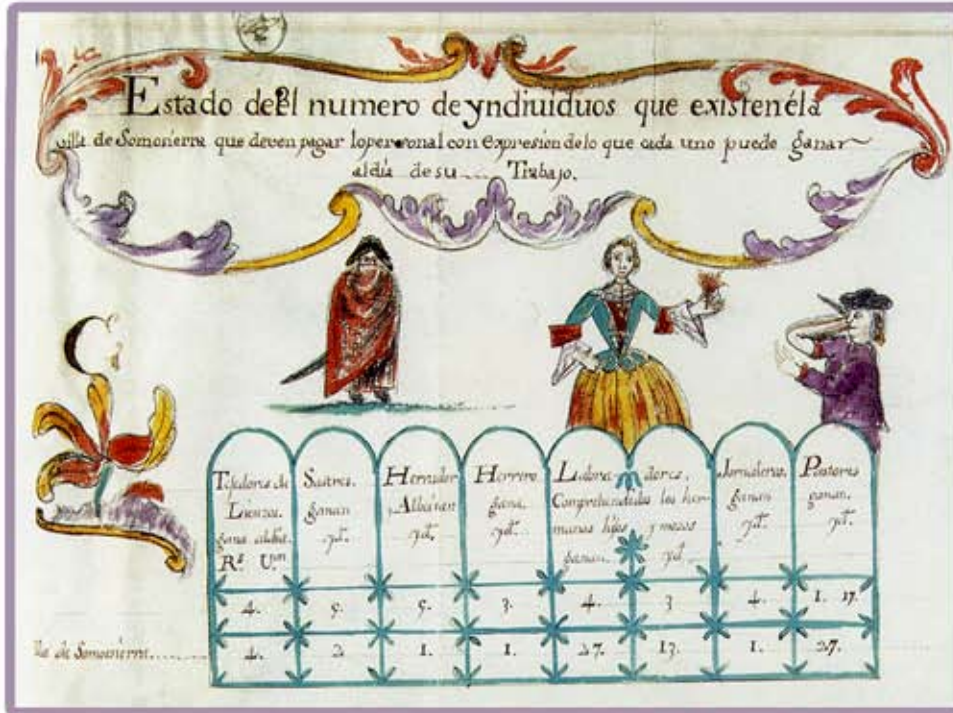 Estado del numero de yndiuiduos que existen éla
villa de Somosierra que deven pagar lo personal con expresion de lo que cada uno puede ganar
al día de su .... Trabajo.
Texedores de
Lienzos.
gana al dia.
Rˢ. Uᵒⁿ
Sastres.
ganan
yd.
Herrador
y Albeitar
yd.
Herrero
gana.
yd.
Labradores,
Comprehendidos los hermanos hijos y mozos
ganan. yd.
Jornaleros.
ganan
yd.
Pastores
ganan.
yd.
4. 5. 5. 3. 4. 3 4. 1. 17.
Villa de Somosierra........ 4. 2 1. 1. 27. 13. 1. 27.